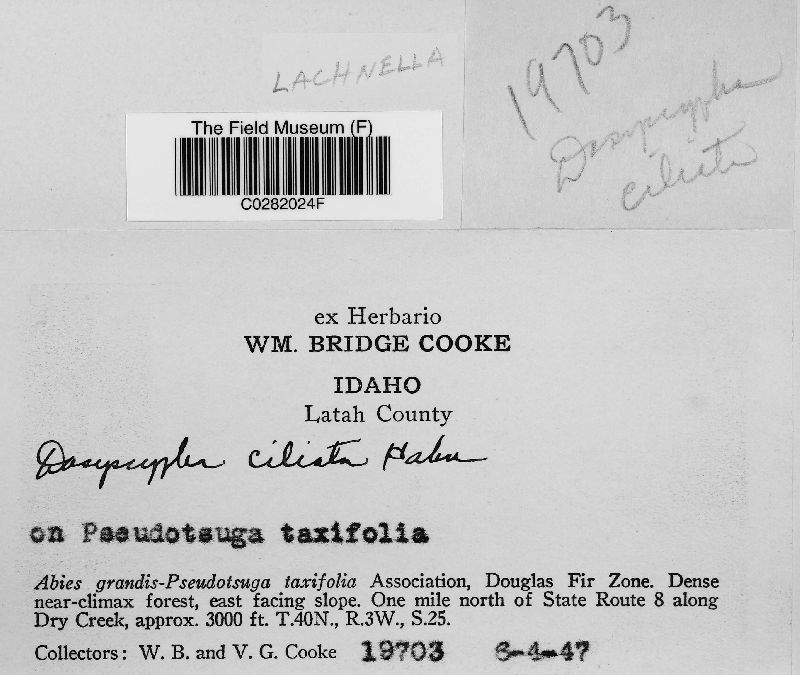 LACHNELLA
The Field Museum (F)
C0282024F
19703
Dasyscypha
ciliata
ex Herbario
WM. BRIDGE COOKE
IDAHO
Latah County
Dasyscypha ciliata Hahn
on Pseudotsuga taxifolia
Abies grandis-Pseudotsuga taxifolia Association, Douglas Fir Zone. Dense
near-climax forest, east facing slope. One mile north of State Route 8 along
Dry Creek, approx. 3000 ft. T.40N., R.3W., S.25.
Collectors: W. B. and V. G. Cooke 19703